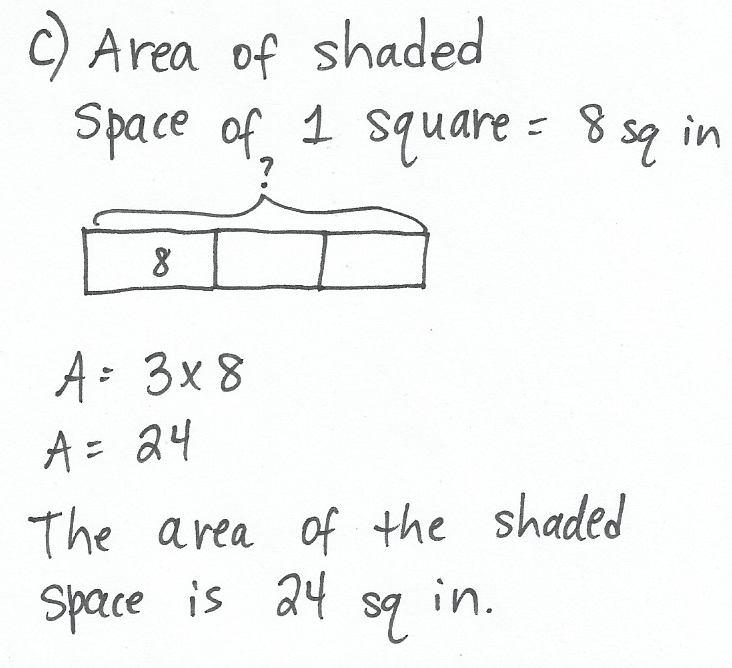 c) Area of shaded
Space of 1 square = 8 sq in
?
8
A = 3 x 8
A = 24
The area of the shaded
space is 24 sq in.